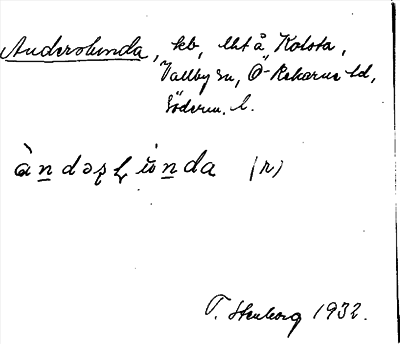 Anderslunda, tb, Uht å Kolsta,
Vallby sn, Ö-Rekarne hd,
Söderm. l.
(n)
T. Stenborg 1932.